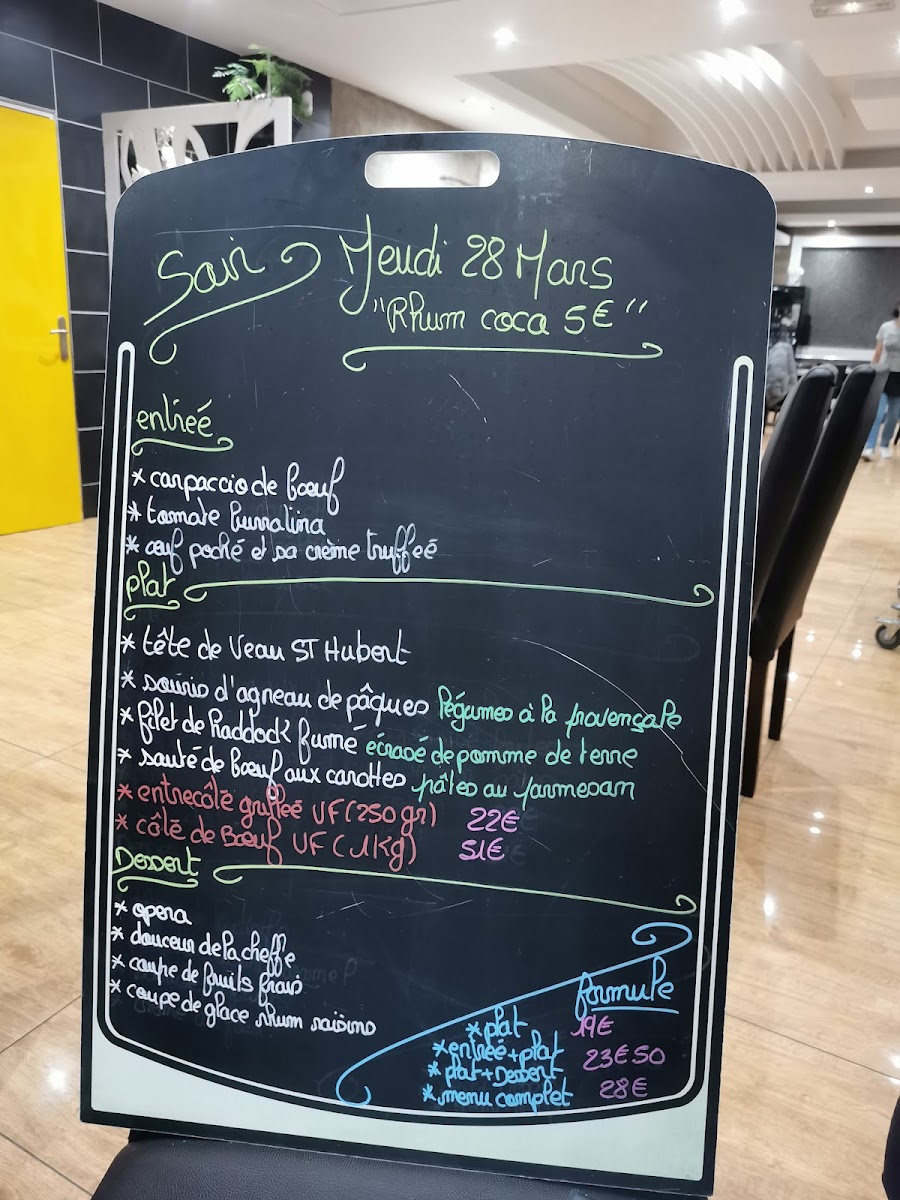 Soir Jeudi 28 Mars
"Rhum coca 5€"
entreé
* carpaccio de bœuf
* tomate burratina
* œuf poché et sa crème truffeé
plat
* tête de Veau ST Hubert
* souris d'agneau de pâques légumes à la provençale
* filet de haddock fumé écrasé de pomme de terre
* sauté de bœuf aux carottes pâtes au parmesan
* entrecôte grilleé VF (250 gr) 22€
* côte de Bœuf VF (1Kg) 51€
Dessert
* opera
* douceur de la cheffe
* coupe de fruits frais
* coupe de glace rhum raisins
formule
* plat 19€
* entreé+plat
* plat+Dessert 23€50
* menu complet 28€